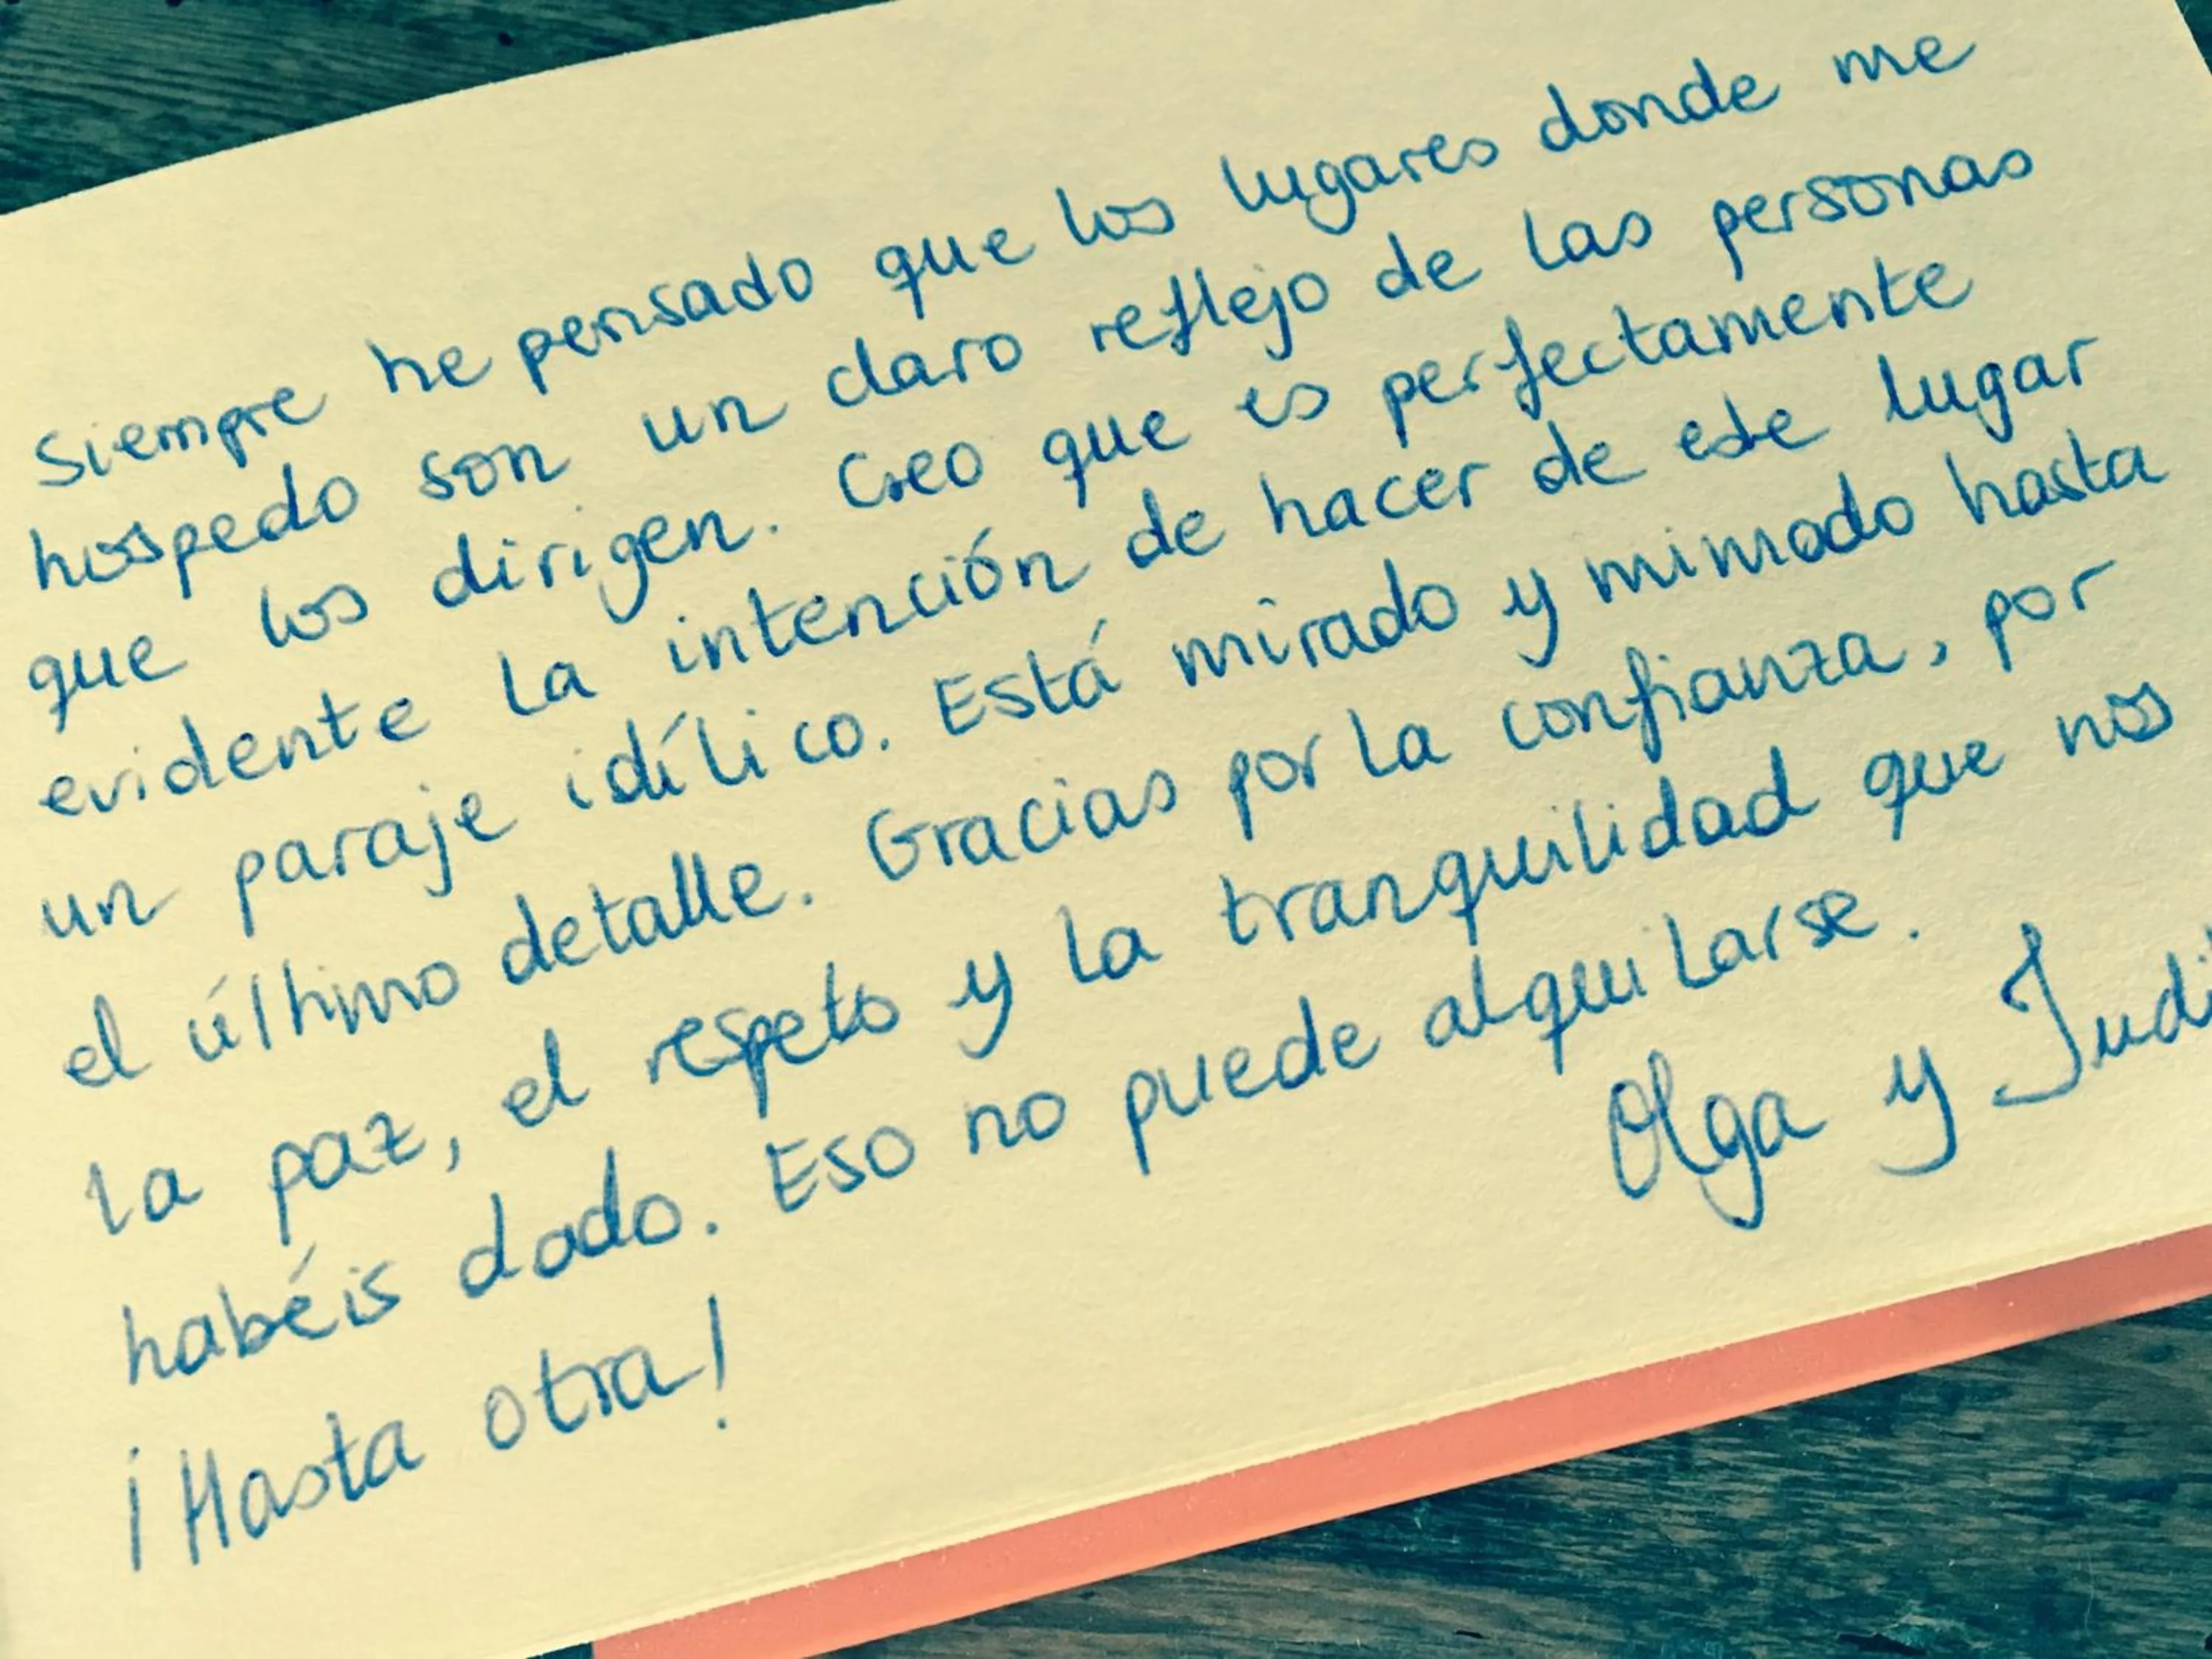 Siempre he pensado que los lugares donde me
hospedo son un claro reflejo de las personas
que los dirigen. Creo que es perfectamente
evidente la intención de hacer de este lugar
un paraje idílico. Está mirado y mimado hasta
el último detalle. Gracias por la confianza, por
la paz, el respeto y la tranquilidad que nos
habéis dado. Eso no puede alquilarse.
Olga y Judi
¡Hasta otra!